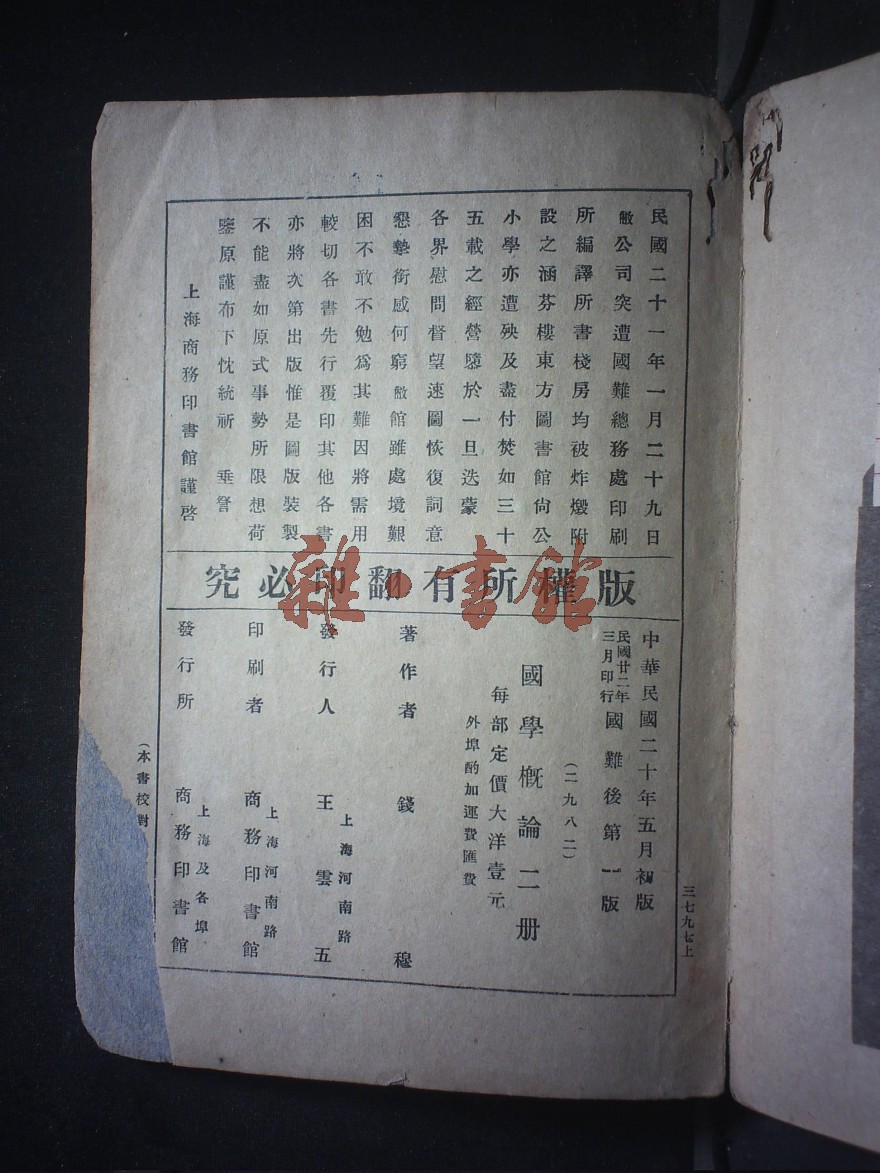 民國二十一年一月二十九日
敝公司突遭國難總務處印刷
所編譯所書棧房均被炸燬附
設之涵芬樓東方圖書館尙公
小學亦遭殃及盡付焚如三十
五載之經營隳於一旦迭蒙
各界慰問督望速圖恢復詞意
懇摯銜感何窮敝館雖處境艱
困不敢不勉爲其難因將需用
較切各書先行覆印其他各書
亦將次第出版惟是圖版裝製
不能盡如原式事勢所限想荷
鑒原謹布下忱統祈 垂詧
上海商務印書館謹啓
版權所有翻印必究
中華民國二十年五月初版
民國廿二年三月印行國難後第一版
(二九八二)
國學概論二册
每部定價大洋壹元
外埠酌加運費匯費
著作者 錢穆
發行人 王雲五
上海河南路
印刷者 商務印書館
上海河南路
發行所 商務印書館
上海及各埠
(本書校對
三七九七上
雜·書館